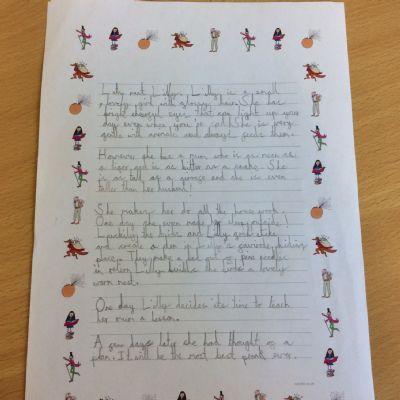 Lilly is a small
lovely girl with glossy hair. She has
bright eyes that can light up your
day even when you're sad. She is very
gentle with animals and always feeds them.
However, she has a mum who is as mean as
a tiger and is as bitter as a snake. She
is as tall as a giraffe and she is even
taller than her husband!
She makes her do all the house work.
One day she even made her sleep outside!
Luckily the birds and Lilly
and a den in Lilly's favourite hiding
place. They make a bed out of
in return Lilly builds the birds a lovely
warm nest.
One day Lilly decides its time to teach
her mum a lesson.
A few days later she had thought of a
plan. It will be the most best prank ever.